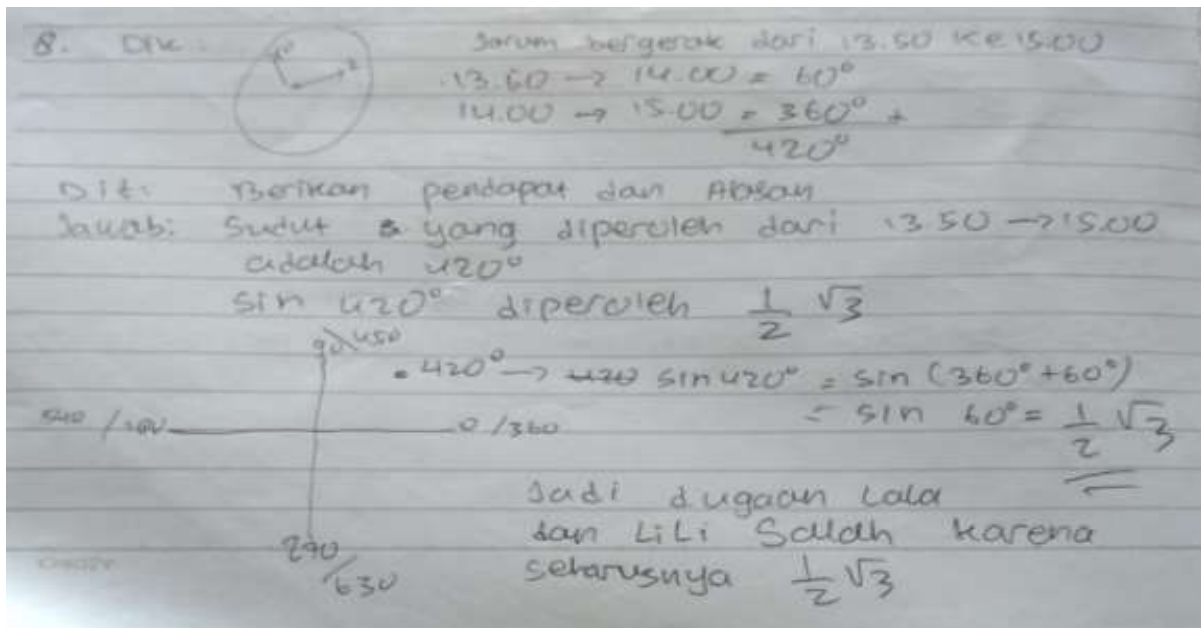 8. Dik : Jarum bergerak dari 13.50 ke 15.00
13.50 → 14.00 = 60°
14.00 → 15.00 = 360° +
420°
Dit : Berikan pendapat dan Alasan
Jawab: Sudut yang diperoleh dari 13.50 → 15.00
adalah 420°
sin 420° diperoleh 1/2 √3
90/450
• 420° → 420 sin 420° = sin (360° + 60°)
540 / 180 0 / 360 = sin 60° = 1/2 √3
Jadi dugaan Lala
dan LiLi Salah karena
270/630 seharusnya 1/2 √3